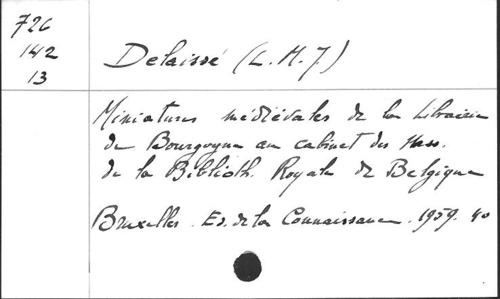 726
142
13
Delaissé (L. M. J.)
Miniatures médiévales de la Librairie
de Bourgogne au cabinet des Mss.
de la Biblioth. Royale de Belgique
Bruxelles. Ed. de la Connaissance. 1959. 40